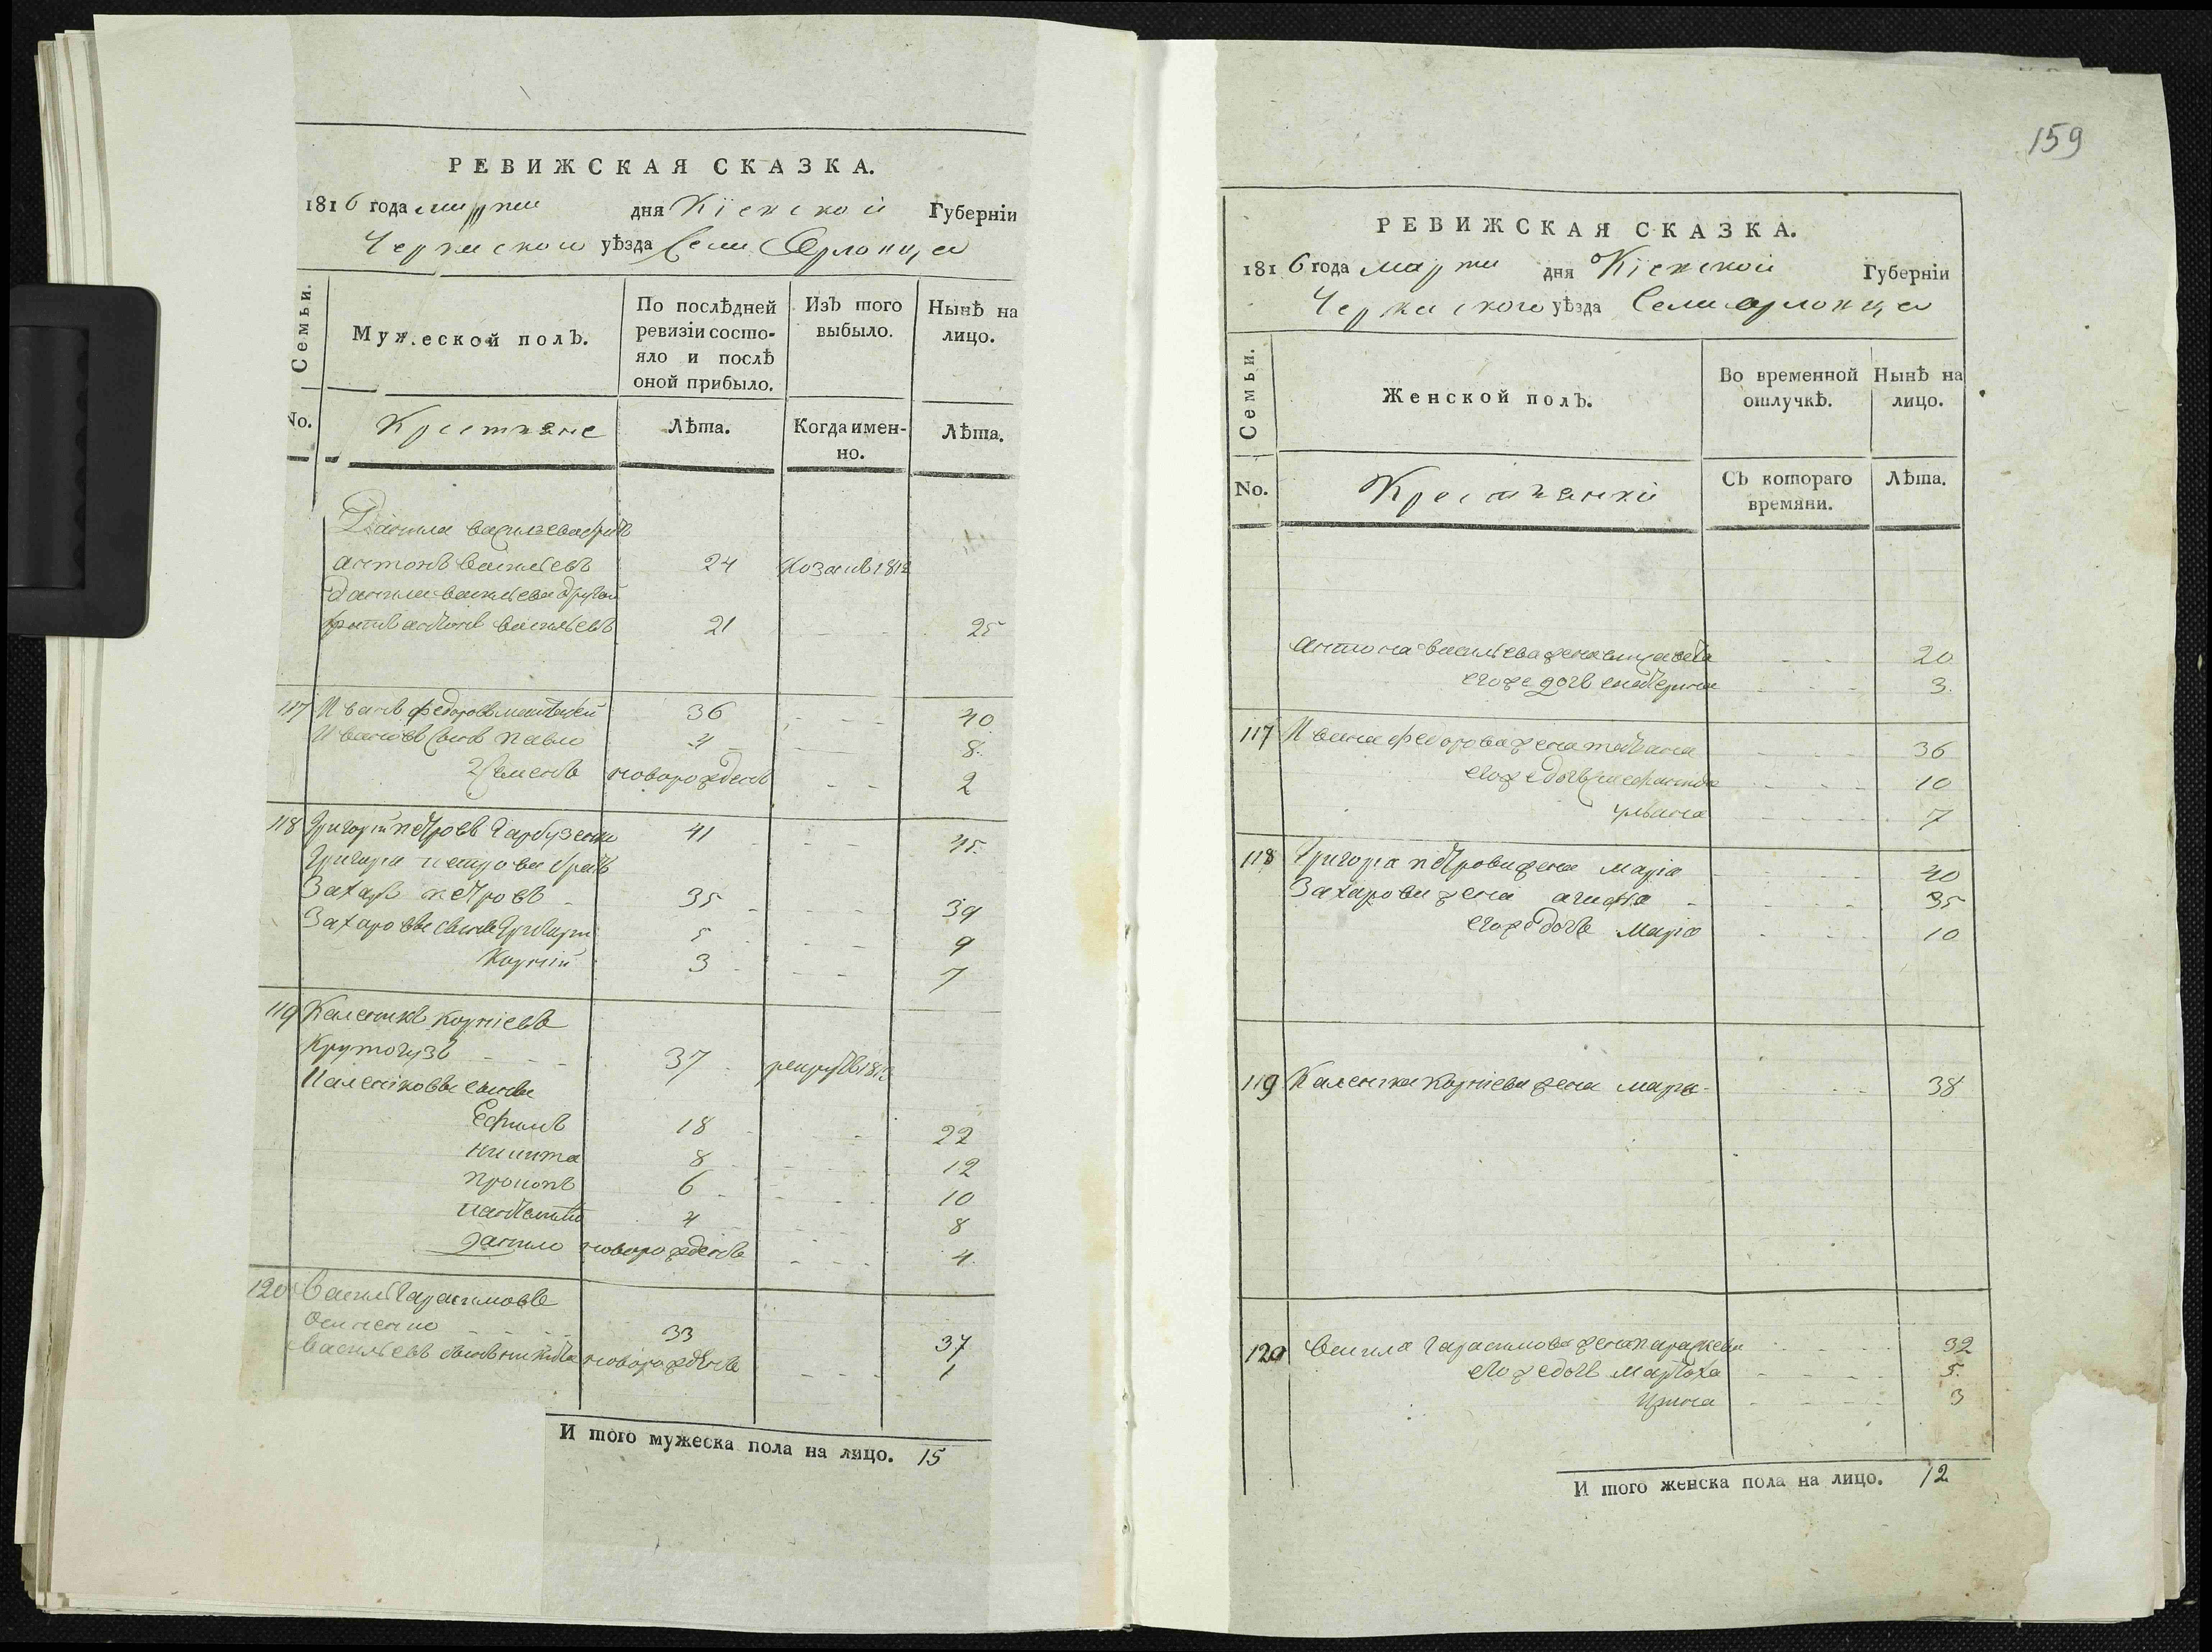 РЕВИЖСКАЯ СКАЗКА.
1816 года марта дня Кіевской Губерніи
Черкаского уѣзда Села Орловца
Семьи.
Мужеской полъ.
По послѣдней ревизіи состояло и послѣ оной прибыло.
Изъ того выбыло.
Нынѣ на лицо.
No.
Крестьяне
Лѣта.
Когда именно.
Лѣта.
Данила васильева братъ
антонъ васильевъ 24 1812
Данила васильева другой
братъ антонъ васильевъ 21 25
117 Иванъ федоровъ 36 40
Ивановъ сынъ павло 4 8
2 Семенъ новорожденъ 2
118 Григорій петровъ Гарбузенко 41 45
Григорія петрова братъ
Захаръ петровъ 35 39
Захаровы сыны Григорій 5 9
Корній 3 7
119 Каленикъ корніевъ
Крутогузъ 37 рекрутъ 181
Каленіковы сыны
Ефимъ 18 22
никита 8 12
прокопъ 6 10
4 8
данило новорожденъ 4
120 Василь Гарасимовъ
33 37
васильевъ сынъ никита новорожденъ 1
И того мужеска пола на лицо. 15
159
РЕВИЖСКАЯ СКАЗКА.
1816 года марта дня Кіевской Губерніи
Черкаского уѣзда Села орловца
Семьи.
Женской полъ.
Во временной отлучкѣ.
Нынѣ на лицо.
No.
Крестьянки
Съ котораго времяни.
Лѣта.
антона васильева жена елизавета 20
егоже дочь екатерина 3
117 Ивана федорова жена татьяна 36
егоже дочь 10
ульяна 7
118 Григорія петрова жена марія 40
Захарова жена агафія 35
егоже дочь марія 10
119 Каленика корніева жена марья 38
120 василя гарасимова жена параскева 32
егоже дочь марѳа 5
ирина 3
И того женска пола на лицо. 12